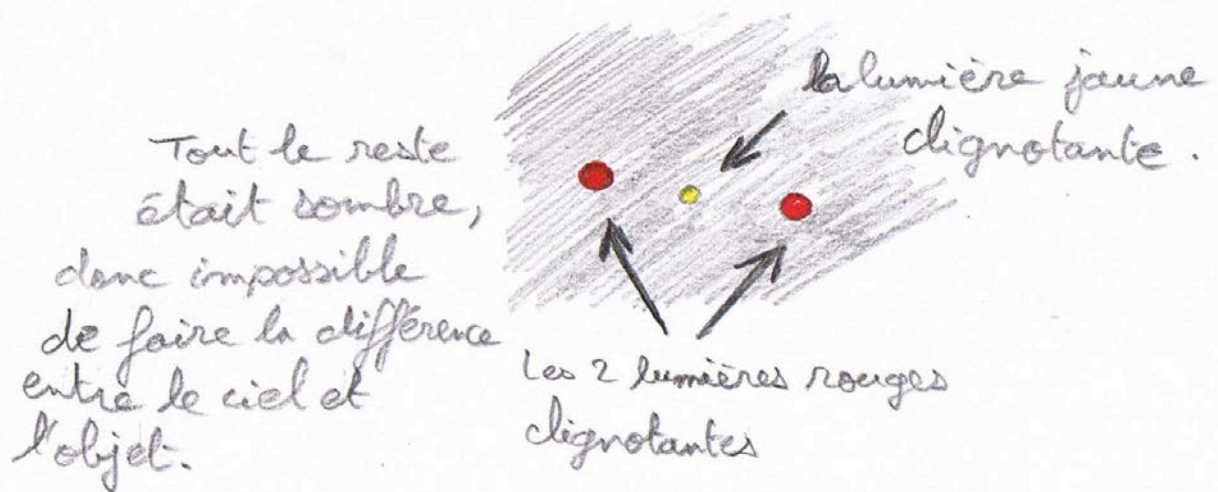 Tout le reste
était sombre,
donc impossible
de faire la différence
entre le ciel et
l'objet.
la lumière jaune
clignotante.
Les 2 lumières rouges
clignotantes